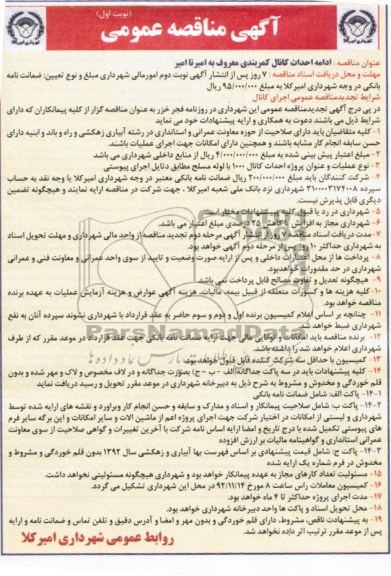 (نوبت اول)
آگهی مناقصه عمومی
عنوان مناقصه : ادامه احداث کانال کمربندی معروف به امیر تا امیر
مهلت و محل دریافت اسناد مناقصه : ۷ روز پس از انتشار آگهی نوبت دوم امورمالی شهرداری مبلغ و نوع تعیین: ضمانت نامه
بانکی در وجه شهرداری امیرکلا به مبلغ ۹۵/۰۰۰/۰۰۰ ریال
شرایط تجدیدمناقصه عمومی اجرای کانال
در پی درج آگهی تجدیدمناقصه عمومی این شهرداری در روزنامه فجر خزر به عنوان مناقصه گزار از کلیه پیمانکاران که دارای
شرایط ذیل می باشند دعوت به همکاری و ارایه پیشنهادات خود می نماید
۱- کلیه متقاضیان باید دارای صلاحیت از حوزه معاونت عمرانی و استانداری در رشته آبیاری زهکشی و راه و باند و ابنیه دارای
حسن سابقه انجام کار مشابه باشند و همچنین دارای امکانات جهت اجرای عملیات باشند.
۲- مبلغ اعتبار پیش بینی شده به مبلغ ۴/۰۰۰/۰۰۰/۰۰۰ ریال از منابع داخلی شهرداری می باشد
۳- نوع عملیات و عنوان پروژه احداث کانال ۱۰۰۰ با لوله مسلح مطابق دتایل اجرای پیوستی
۴- شرکت کنندگان باید مبلغ ۲۰۰/۰۰۰/۰۰۰ ریال ضمانت نامه بانکی معتبر در وجه شهرداری امیرکلا یا وجه نقد به حساب
سپرده ۳۱۰۰۰۰۳۱۷۴۰۰۸ شهرداری نزد بانک ملی شعبه امیرکلا ، جهت شرکت در مناقصه ارایه نمایند و هیچگونه تضمین
دیگری قابل پذیرش نیست.
۵- شهرداری در رد یا قبول کلیه پیشنهادات مختار است
۶- شهرداری مجاز به افزایش یا کاهش ۲۵ درصدی مبلغ اعتبار می باشد.
۷- مدت دریافت اسناد مناقصه ۷ روز از انتشار آگهی مرحله دوم تجدید مناقصه از واحد مالی شهرداری و مهلت تحویل اسناد
به شهرداری حداکثر ۱۰ روز پس از مرحله دوم آگهی خواهد بود.
۸- پرداخت ها از محل اعتبارات داخلی و پس از ارایه صورت وضعیت و تایید از سوی واحد عمرانی و معاونت فنی و عمرانی
شهرداری در حد مقدورات خواهدبود.
۹- هیچگونه تعدیل و تفاوت مصالح قابل پرداخت نمی باشد.
۱۰- کلیه هزینه ها و کسورات متعلقه از قبیل بیمه، مالیات، هزینه آگهی عوارض و هزینه آزمایش عملیات به عهده برنده
مناقصه خواهد بود.
۱۱- چنانچه بر اساس اعلام کمیسیون برنده اول و دوم و سوم حاضر به عقد قرارداد با شهرداری نشوند سپرده آنان به نفع
شهرداری ضبط خواهد شد.
۱۲- برنده مناقصه باید امکانات و توانایی مالی جهت ارایه ضمانت نامه بانکی جهت عقد قرارداد در موعد مقرر که از طرف
شهرداری اعلام خواهد شد را داشته باشد.
۱۳- کمیسیون با حداقل سه شرکت کننده قابل قبول خواهد بود.
۱۴- کلیه پیشنهادات باید در سه پاکت جداگانه الف – ب – ج) بصورت جداگانه و در لاف مخصوص و لاک و مهر شده و بدون
قلم خوردگی و مخدوش و مشروط به شرح ذیل به دبیرخانه شهرداری در موعد مقرر تحویل و رسید دریافت نماید
۱۴-۱- پاکت الف: شامل ضمانت نامه بانکی
۱۴-۲- پاکت ب: شامل صلاحیت پیمانکار و اسناد و مدارک و سابقه و حسن انجام کار وبراورد و نقشه های ارایه شده توسط
شهرداری و لیستی از امکانات در اختیار شرکت جهت اجرای پروژه اعم از ماشین الات و سایر امکانات و این برگه سایر فرم
های پیوستی تکمیل شده با درج تاریخ و امضا ارایه اساس نامه شرکت با آخرین تغییرات و گواهی صلاحیت از سوی معاونت
عمرانی استانداری و گواهینامه مالیات بر ارزش افزوده
۱۴-۳- پاکت ج: شامل قیمت پیشنهادی بر اساس فهرست بها آبیاری و زهکشی سال ۱۳۹۲ بدون قلم خوردگی و مشروط و
مخدوش در فرم شماره یک ارایه شده
۱۵- مسئولیت تعداد کارهای مجاز به عهده پیمانکار خواهد بود و شهرداری هیچگونه مسئولیتی نخواهد داشت.
۱۶- کمیسیون معاملات راس ساعت ۸ مورخ ۹۲/۱۱/۱۴ در محل این شهرداری تشکیل می گردد.
۱۷- مدت اجرای پروژه حداکثر تا ۴ ماه خواهد بود.
۱۸- محل تحویل اسناد و پاکت ها واحد دبیرخانه شهرداری خواهد بود.
۱۹- به پیشنهادات ناقص، مشروط، دارای قلم خوردگی و بدون مهر و امضا و آدرس دقیق و تلفن تماس و ضمانت نامه و ارایه
پس از موعد مقرر ترتیب اثر داده نخواهد شد.
روابط عمومی شهرداری امیرکلا
ParsNamadData